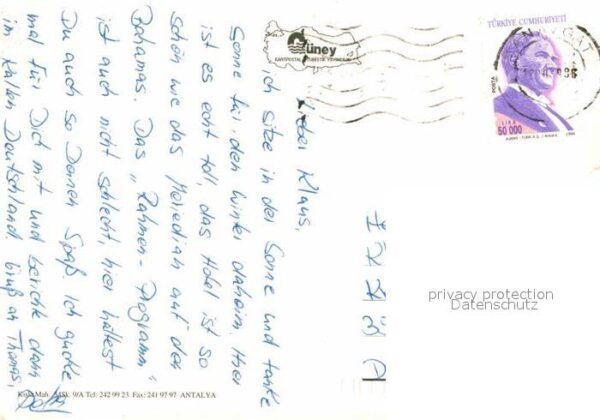 Lieber Klaus,
ich sitze in der Sonne und tanke
Sonne für den Winter daheim. Hier
ist es echt toll, das Hotel ist so
schön wie das Meridian auf den
Bahamas. Das "Rahmen-Programm"
ist auch nicht schlecht, hier hättest
Du auch so Deinen Spaß. Ich gucke
mal für Dich mit und berichte dann
im kalten Deutschland. Gruß an Thomas,
Güney
KARTPOSTAL TURİSTİK YAYINCILIK
TÜRKİYE CUMHURİYETİ
POSTA
LİRA
50 000
privacy protection
Datenschutz
9/A Tel: 242 99 23 Fax: 241 97 97 ANTALYA